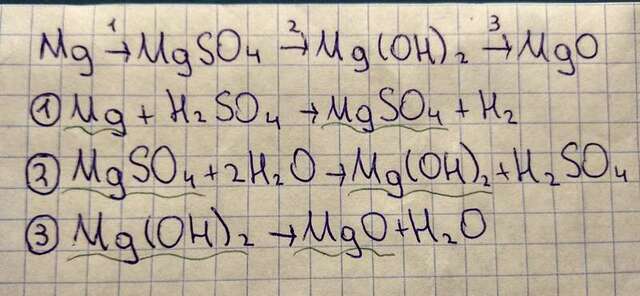 Mg →¹ MgSO₄ →² Mg(OH)₂ →³ MgO
① Mg + H₂SO₄ → MgSO₄ + H₂
② MgSO₄ + 2H₂O → Mg(OH)₂ + H₂SO₄
③ Mg(OH)₂ → MgO + H₂O